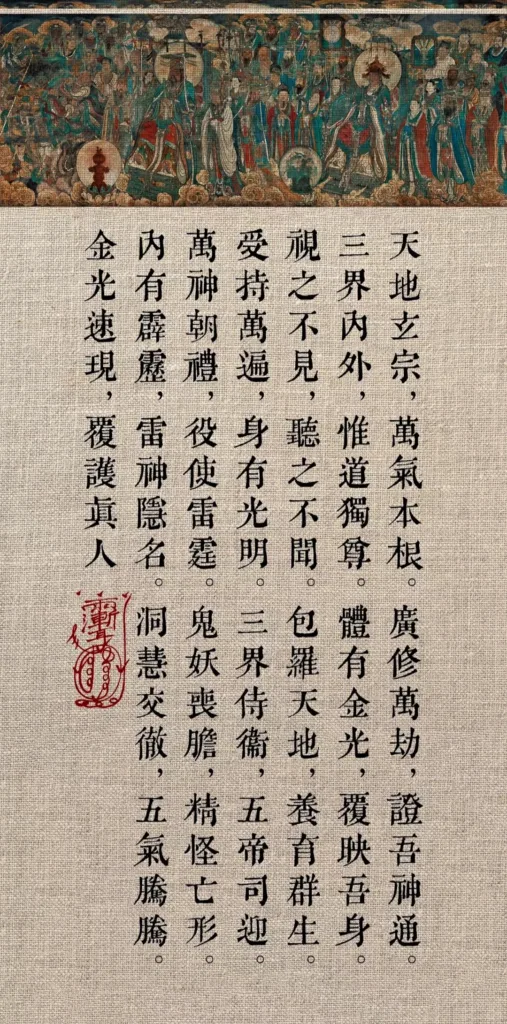 天地玄宗，萬氣本根。廣修萬劫，證吾神通。
三界內外，惟道獨尊。體有金光，覆映吾身。
視之不見，聽之不聞。包羅天地，養育群生。
受持萬遍，身有光明。三界侍衞，五帝司迎。
萬神朝禮，役使雷霆。鬼妖喪膽，精怪亡形。
內有霹靂，雷神隱名。洞慧交徹，五氣騰騰。
金光速現，覆護眞人